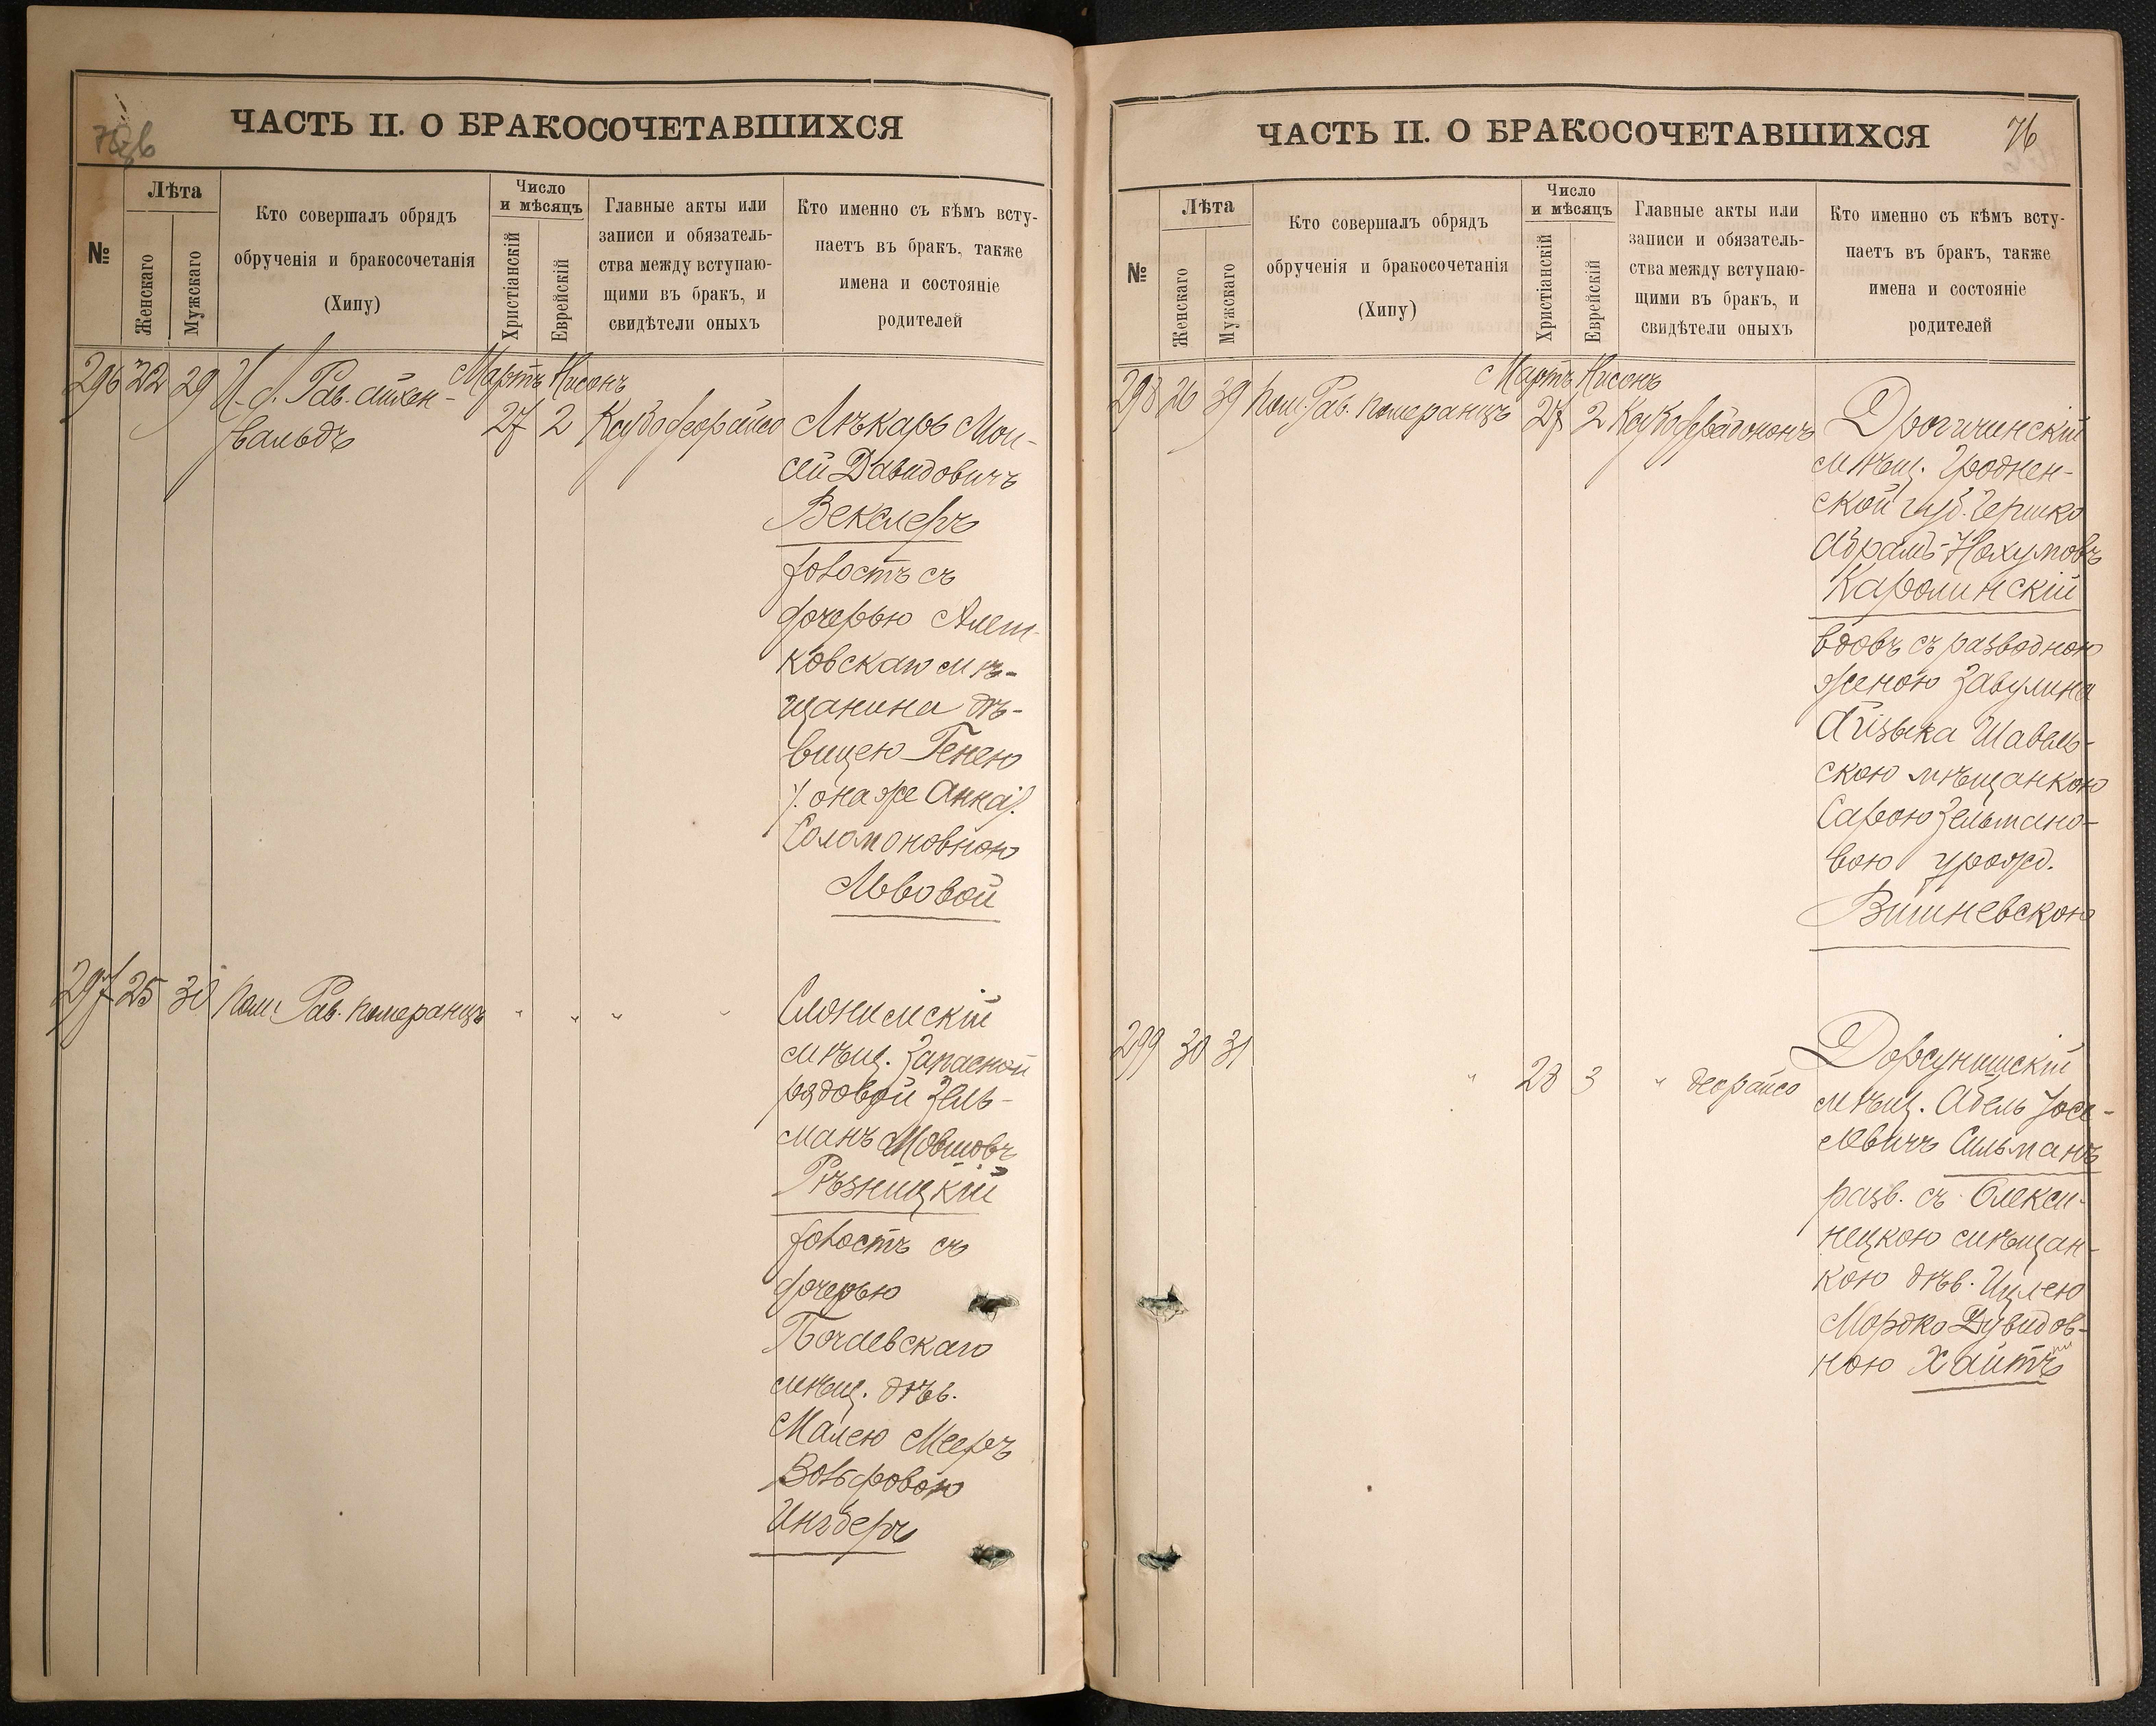 75 об
ЧАСТЬ II. О БРАКОСОЧЕТАВШИХСЯ
№
Лѣта
Женскаго
Мужскаго
Кто совершалъ обрядъ
обрученія и бракосочетанія
(Хипу)
Число
и мѣсяцъ
Христіанскій
Еврейскій
Главные акты или
записи и обязатель-
ства между вступаю-
щими въ бракъ, и
свидѣтели оныхъ
Кто именно съ кѣмъ всту-
паетъ въ бракъ, также
имена и состояніе
родителей
296 22 29 Рав. Айзен-
вальдъ
Мартъ Нисонъ
27 2
Лѣкарь Мои-
сей Давидовичъ
Векслеръ
холостъ съ
дочерью Алеш-
ковскаго мѣ-
щанина дѣ-
вицею Генею
/. она же Анна ./
Соломоновною
Львовой
297 25 30 пом. Рав. Померанцъ " " " "
Слонимскій
мѣщ. запасной
рядовой Зель-
манъ Мовшовъ
Рѣзницкій
холостъ съ
дочерью
Почаевскаго
мѣщ. дѣв.
Малею Мееръ
Вольфовою
Ингберъ
ЧАСТЬ II. О БРАКОСОЧЕТАВШИХСЯ
76
№
Лѣта
Женскаго
Мужскаго
Кто совершалъ обрядъ
обрученія и бракосочетанія
(Хипу)
Число
и мѣсяцъ
Христіанскій
Еврейскій
Главные акты или
записи и обязатель-
ства между вступаю-
щими въ бракъ, и
свидѣтели оныхъ
Кто именно съ кѣмъ всту-
паетъ въ бракъ, также
имена и состояніе
родителей
298 26 39 пом. Рав. Померанцъ
Мартъ Нисонъ
27 2
Дрогичинскій
мѣщ. Гроднен-
ской губ. Гершко
Абрамъ-Нохумовъ
Каролинскій
вдовъ съ разводною
женою Завулина
Айзыка Шавель-
скою мѣщанкою
Сарою Зельмано-
вою урожд.
Вишневскою
299 30 31 " 28 3 " деорайсо
Дорсунишскій
мѣщ. Абель Іосе-
левичъ Сильманъ
разв. съ Олекси-
нецкою мѣщан-
кою дѣв. Ципею
Мордко Дувидов-
ною Хаитъ